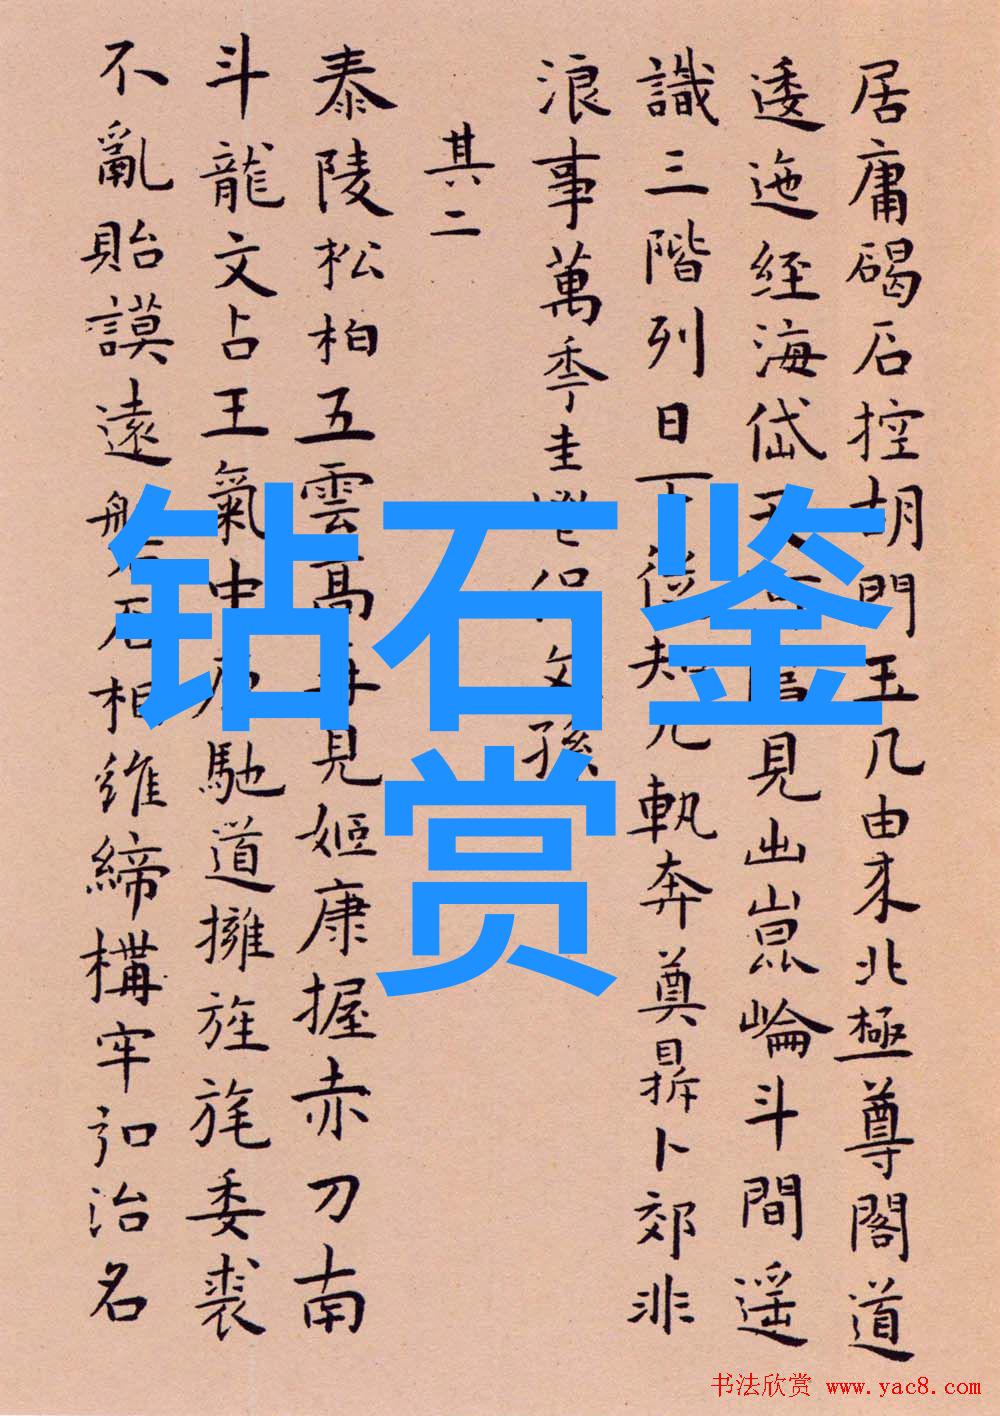 居庸碣石控胡門玉几由来北極尊閣道
逶迤經海岱天見出崑崙斗間遥
識三階列日下執奔奠鼎卜郊非
浪事萬季圭文孫
其二
泰陵松柏五雲高見姬康握赤刀南
斗龍文占王氣中馳道擁旌旄委裘
不亂貽謨遠石相維締構牢扣治名
钻石鉴
赏
书法欣赏 www.yac8.com